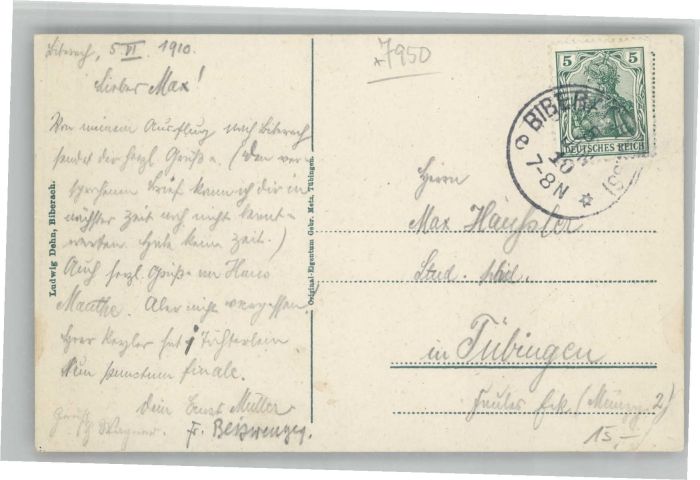 Biberach, 5 VI. 1910.
Lieber Max!
Von meinem Ausflug nach Biberach
sendet dir herzl. Grüße. (Den ver-
sprochenen Brief kann ich dir in
nächster Zeit noch nicht beant-
worten. Habe keine Zeit.)
Auch herzl. Grüße an Hans
Mauthe. Aber nicht vergessen.
Herr Kepler hat 1 Töchterlein
Nun punctum finale.
Dein Ernst Müller
Gruß Wagner. Fr. Beiswenger.
Ludwig Dehn, Biberach.
Original-Eigentum Gebr. Metz, Tübingen.
*7950
5 5
DEUTSCHES REICH
BIBER
e 10
7-8N
Herrn
Max Häussler
Stud.
in Tübingen
(Münzg. 2)
15.-